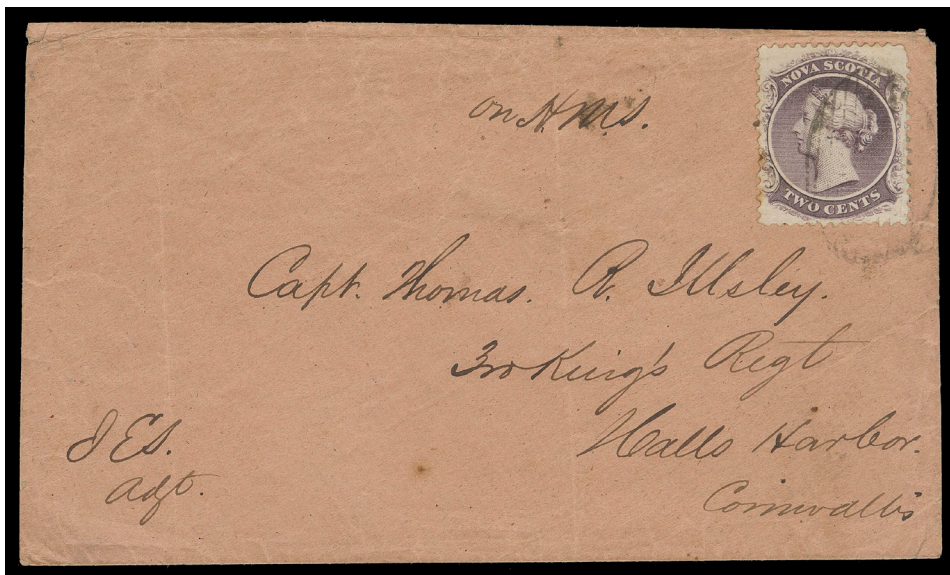 on H.M.S.
NOVA SCOTIA
TWO CENTS
Capt. Thomas. R. Illsley.
3rd King's Regt
Halls Harbor.
Cornwallis
J ES.
Adjt.